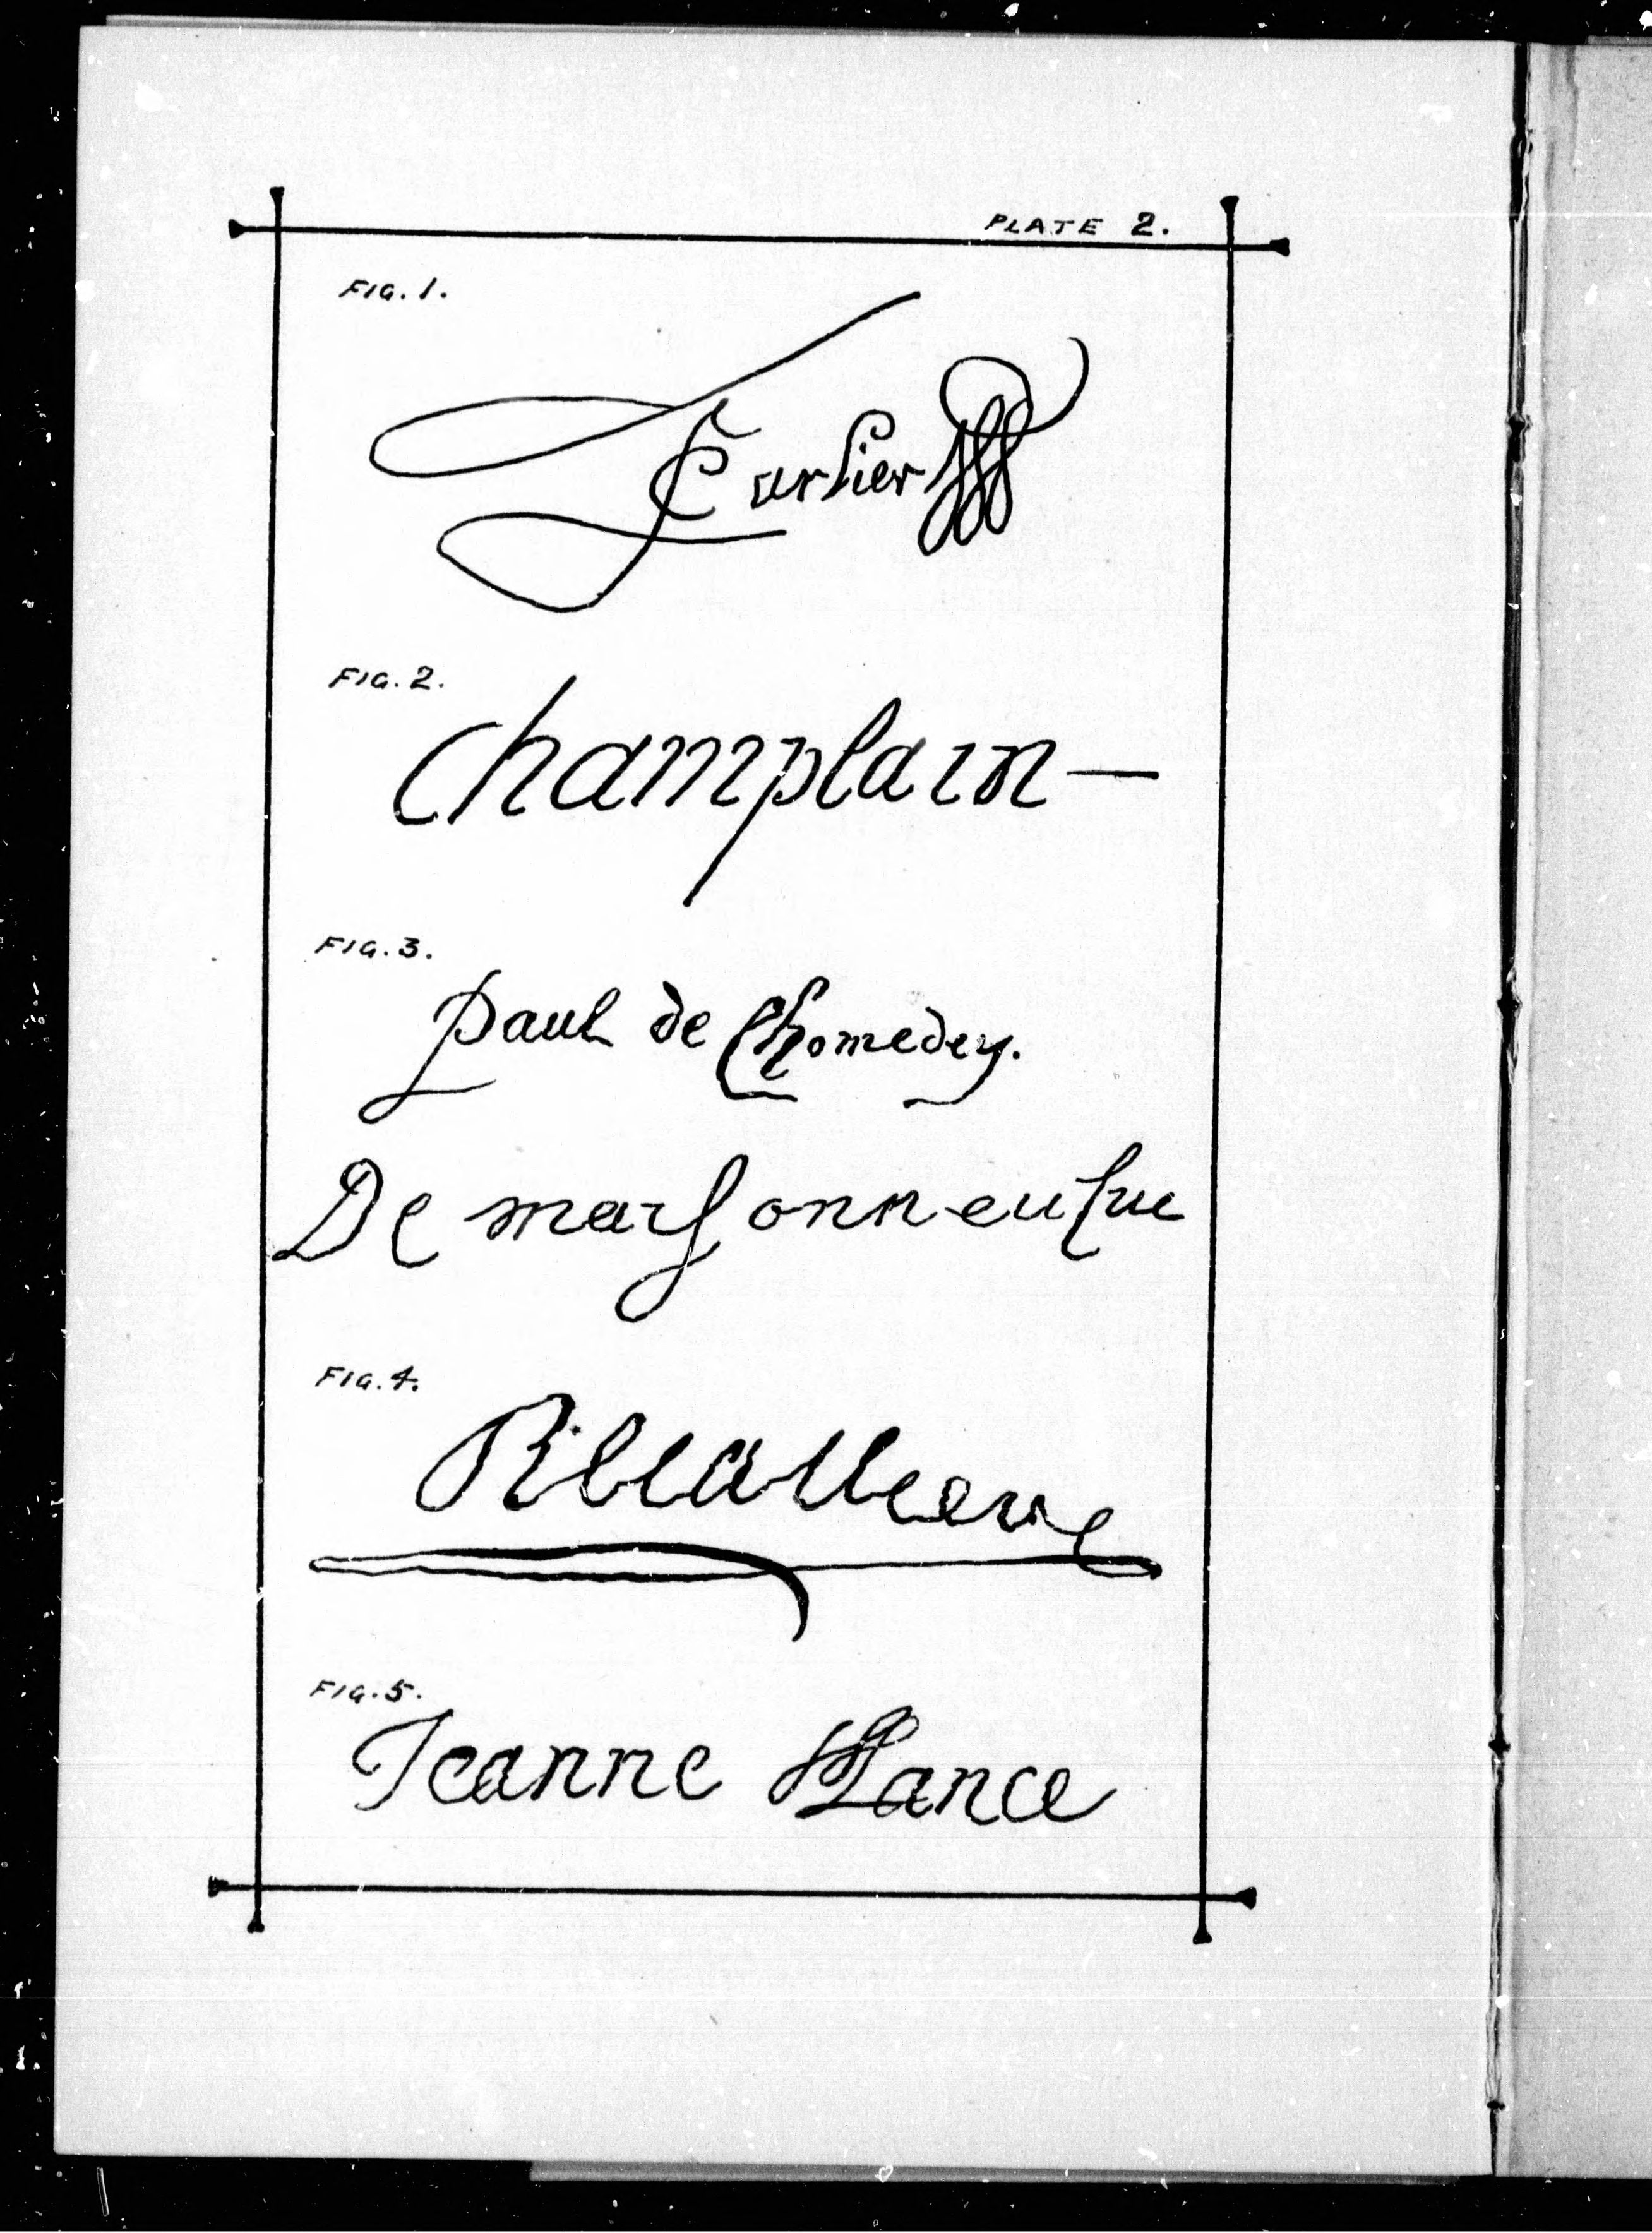 PLATE 2.
FIG. 1.
Cartier
FIG. 2.
Champlain—
FIG. 3.
Paul de Chomedey.
De maisonneufue
FIG. 4.
FIG. 5.
Jeanne Mance